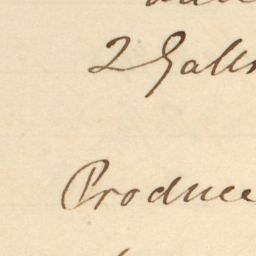 2 Galls
Produce